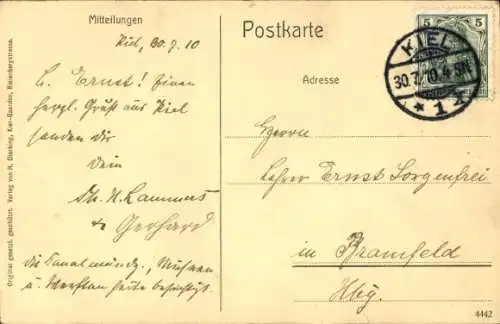 Mitteilungen
Kiel, 30.7.10
L. Ernst! Einen
herzl. Gruß aus Kiel
senden dir
Dein
Th. H. Lammers
& Gerhard
die Kanalmündg., Museen
u. Werften heute besichtigt.
Postkarte
Adresse
5 5
KIEL
30.7.10.4-5N
* 1 *
Herrn
Lehrer Ernst Sorgenfrei
in Bramfeld
Hbg.
4442
Original gesetzl. geschützt. Verlag von H. Dierking, Kiel-Gaarden,